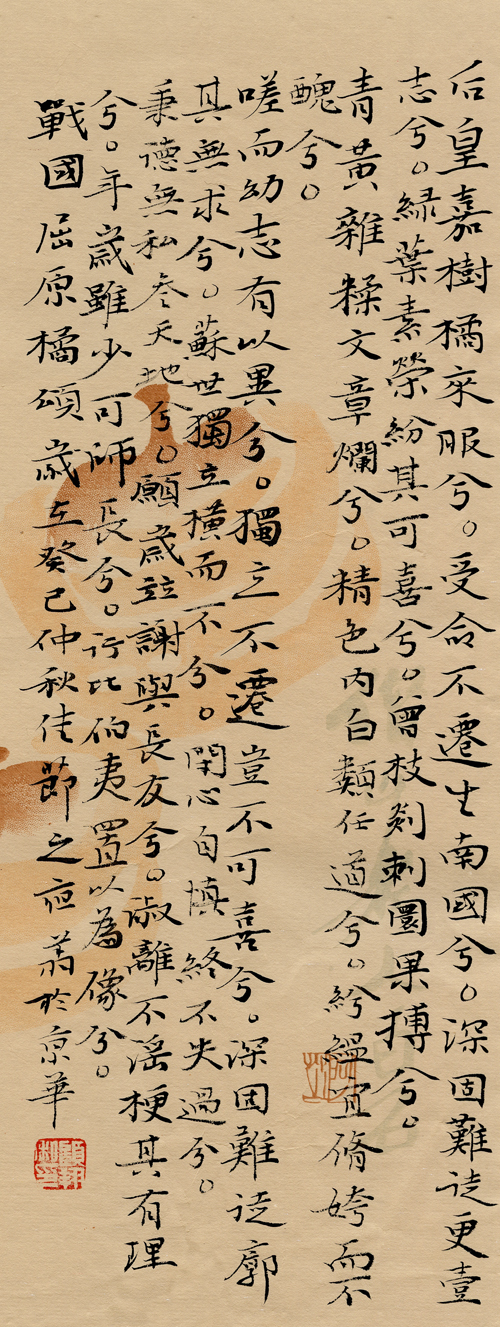 后皇嘉樹橘來服兮。受命不遷生南國兮。深固難徙更壹
志兮。緑葉素榮紛其可喜兮。曾枝剡刺圜果摶兮。
青黃雜糅文章爛兮。精色内白類任道兮。紛緼宜脩姱而不
醜兮。
嗟而幼志有以異兮。獨立不遷豈不可喜兮。深固難徙廓
其無求兮。蘇世獨立橫而不兮。閉心自慎終不失過兮。
秉德無私叄天地兮。願歲竝謝與長友兮。淑離不淫梗其有理
兮。年歲雖少可師長兮。行比伯夷置以為像兮。
戰國屈原橘頌歲在癸巳仲秋佳節之夜於京華